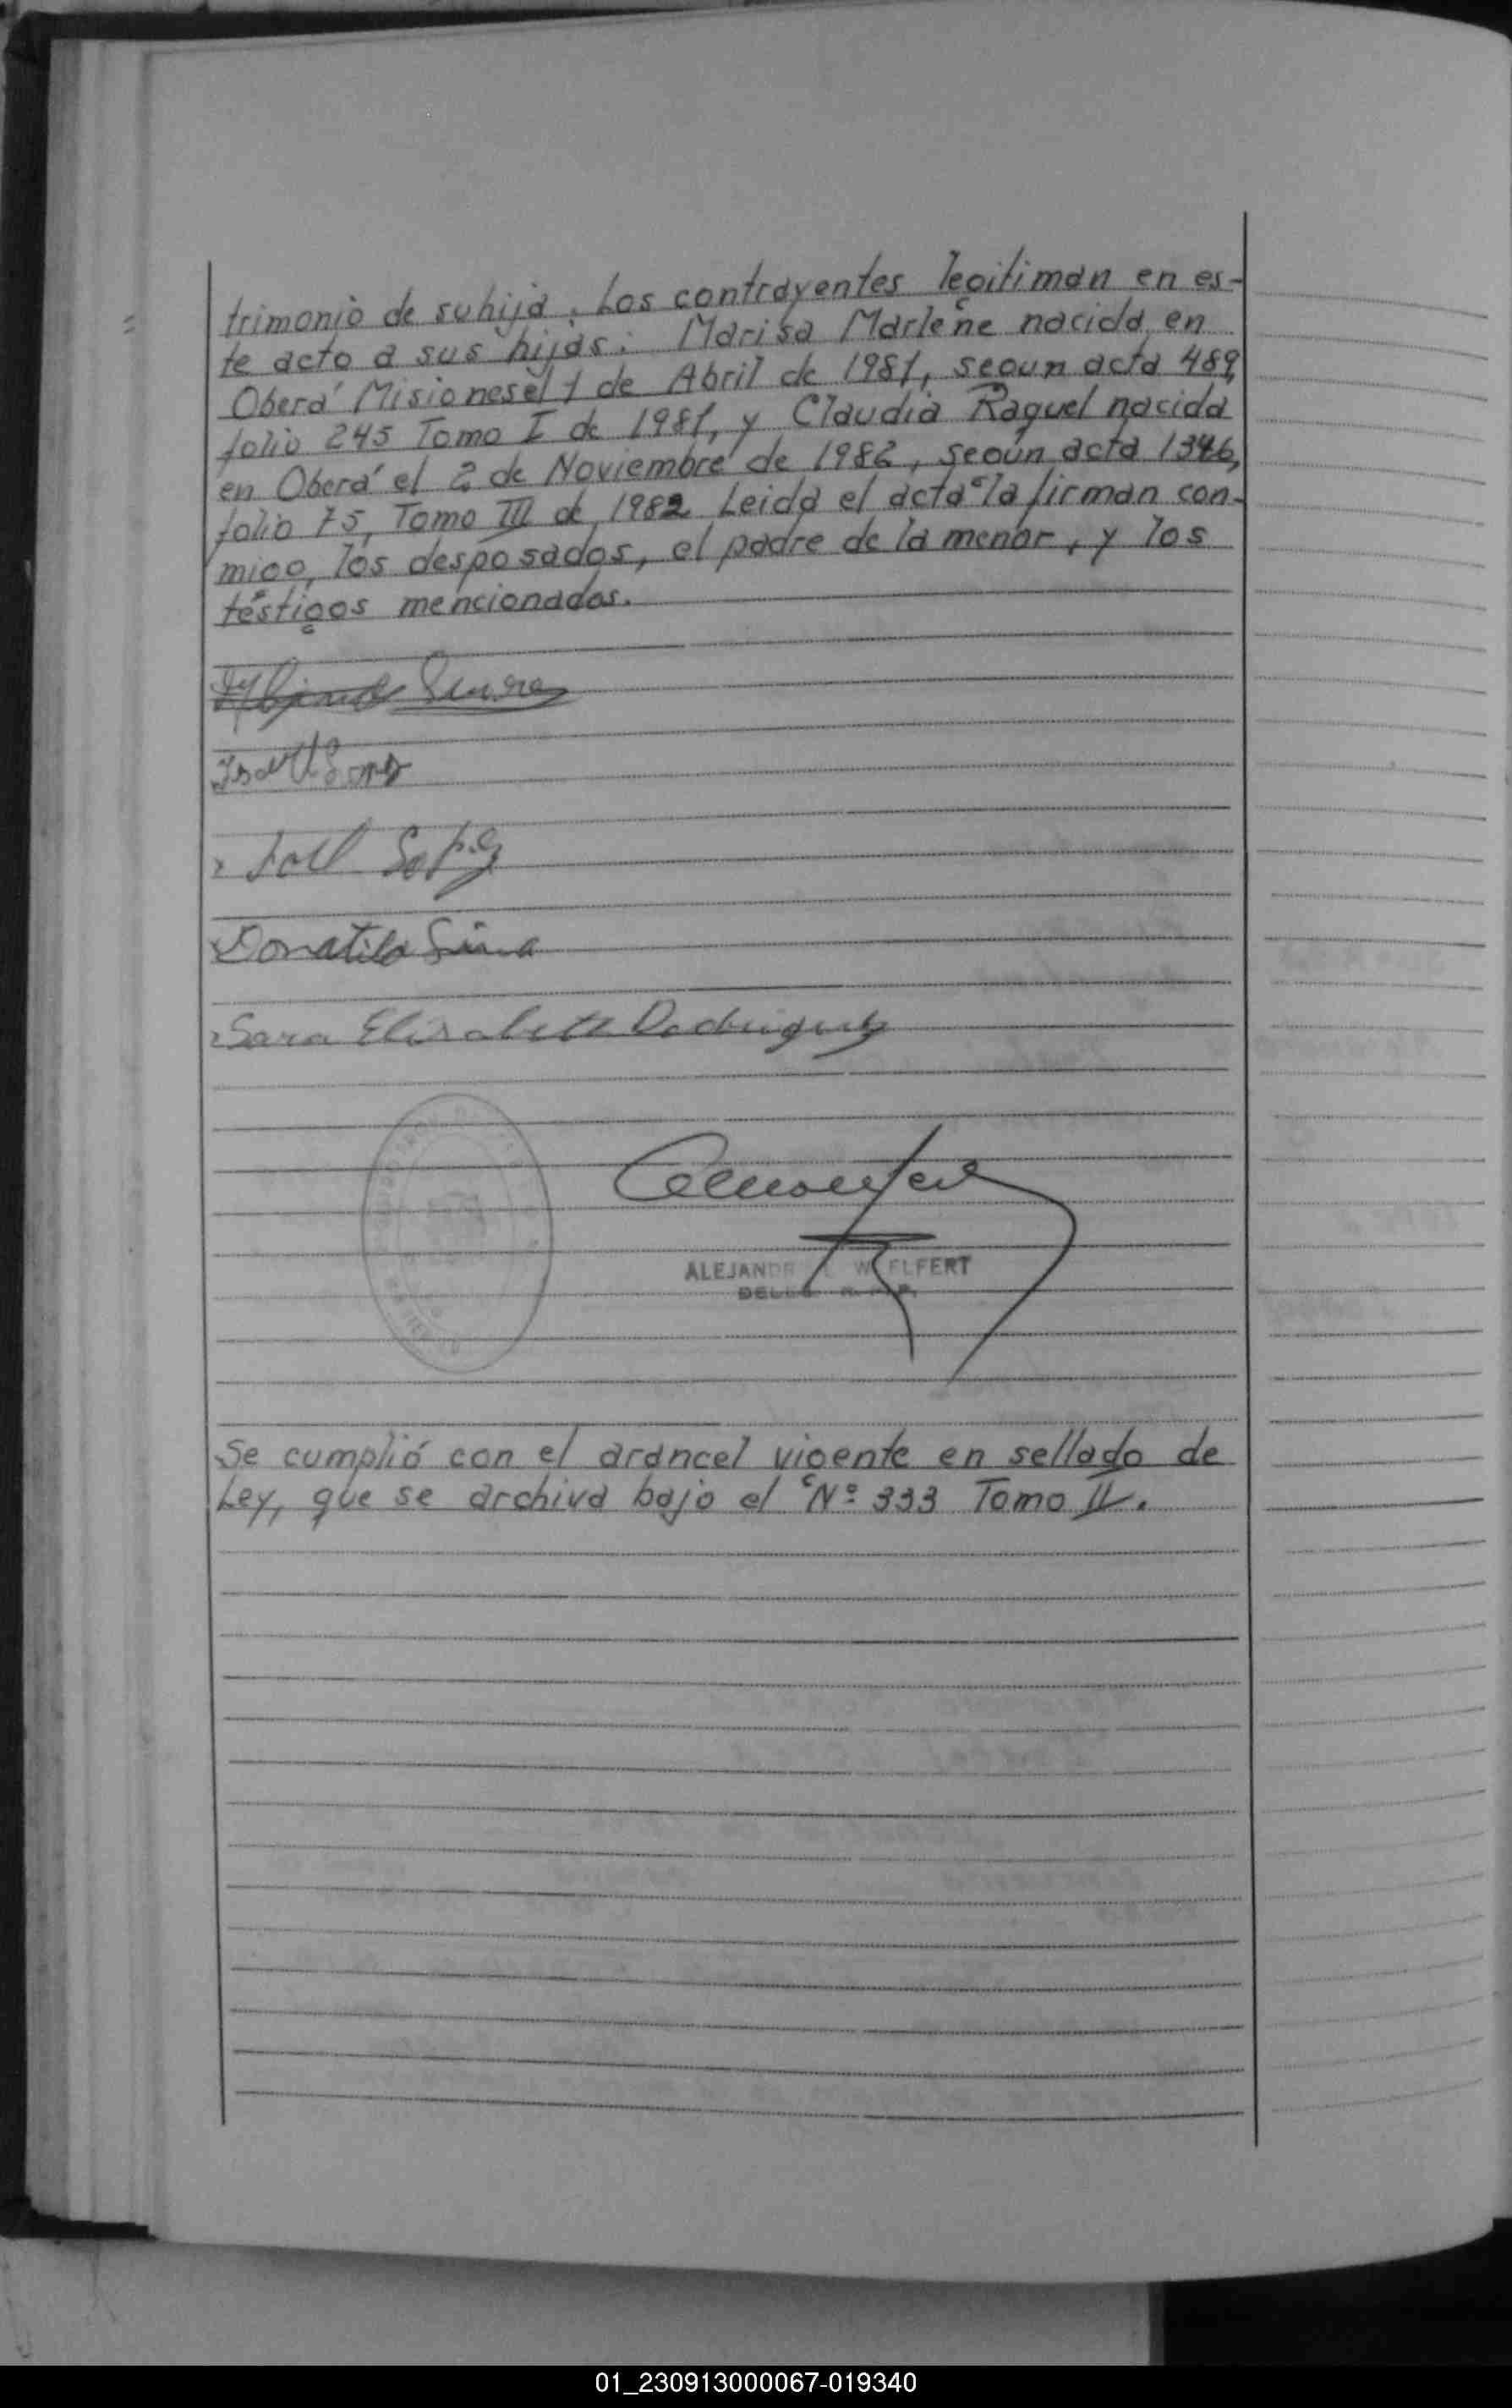 trimonio de su hija. Los contrayentes legitiman en es-
te acto a sus hijas: Marisa Marlene nacida en
Oberá Misiones el 1 de Abril de 1981, según acta 489,
folio 245 Tomo I de 1981, y Claudia Raquel nacida
en Oberá el 2 de Noviembre de 1982, según acta 1346,
folio 75, Tomo III de 1982. Leida el acta la firman con-
migo, los desposados, el padre de la menor, y los
testigos mencionados.
Donatila
Sara Elisabett Rodriguez
ALEJANDR W ELFERT
Se cumplió con el arancel vigente en sellado de
Ley, que se archiva bajo el Nº 333 Tomo II.
01_230913000067-019340